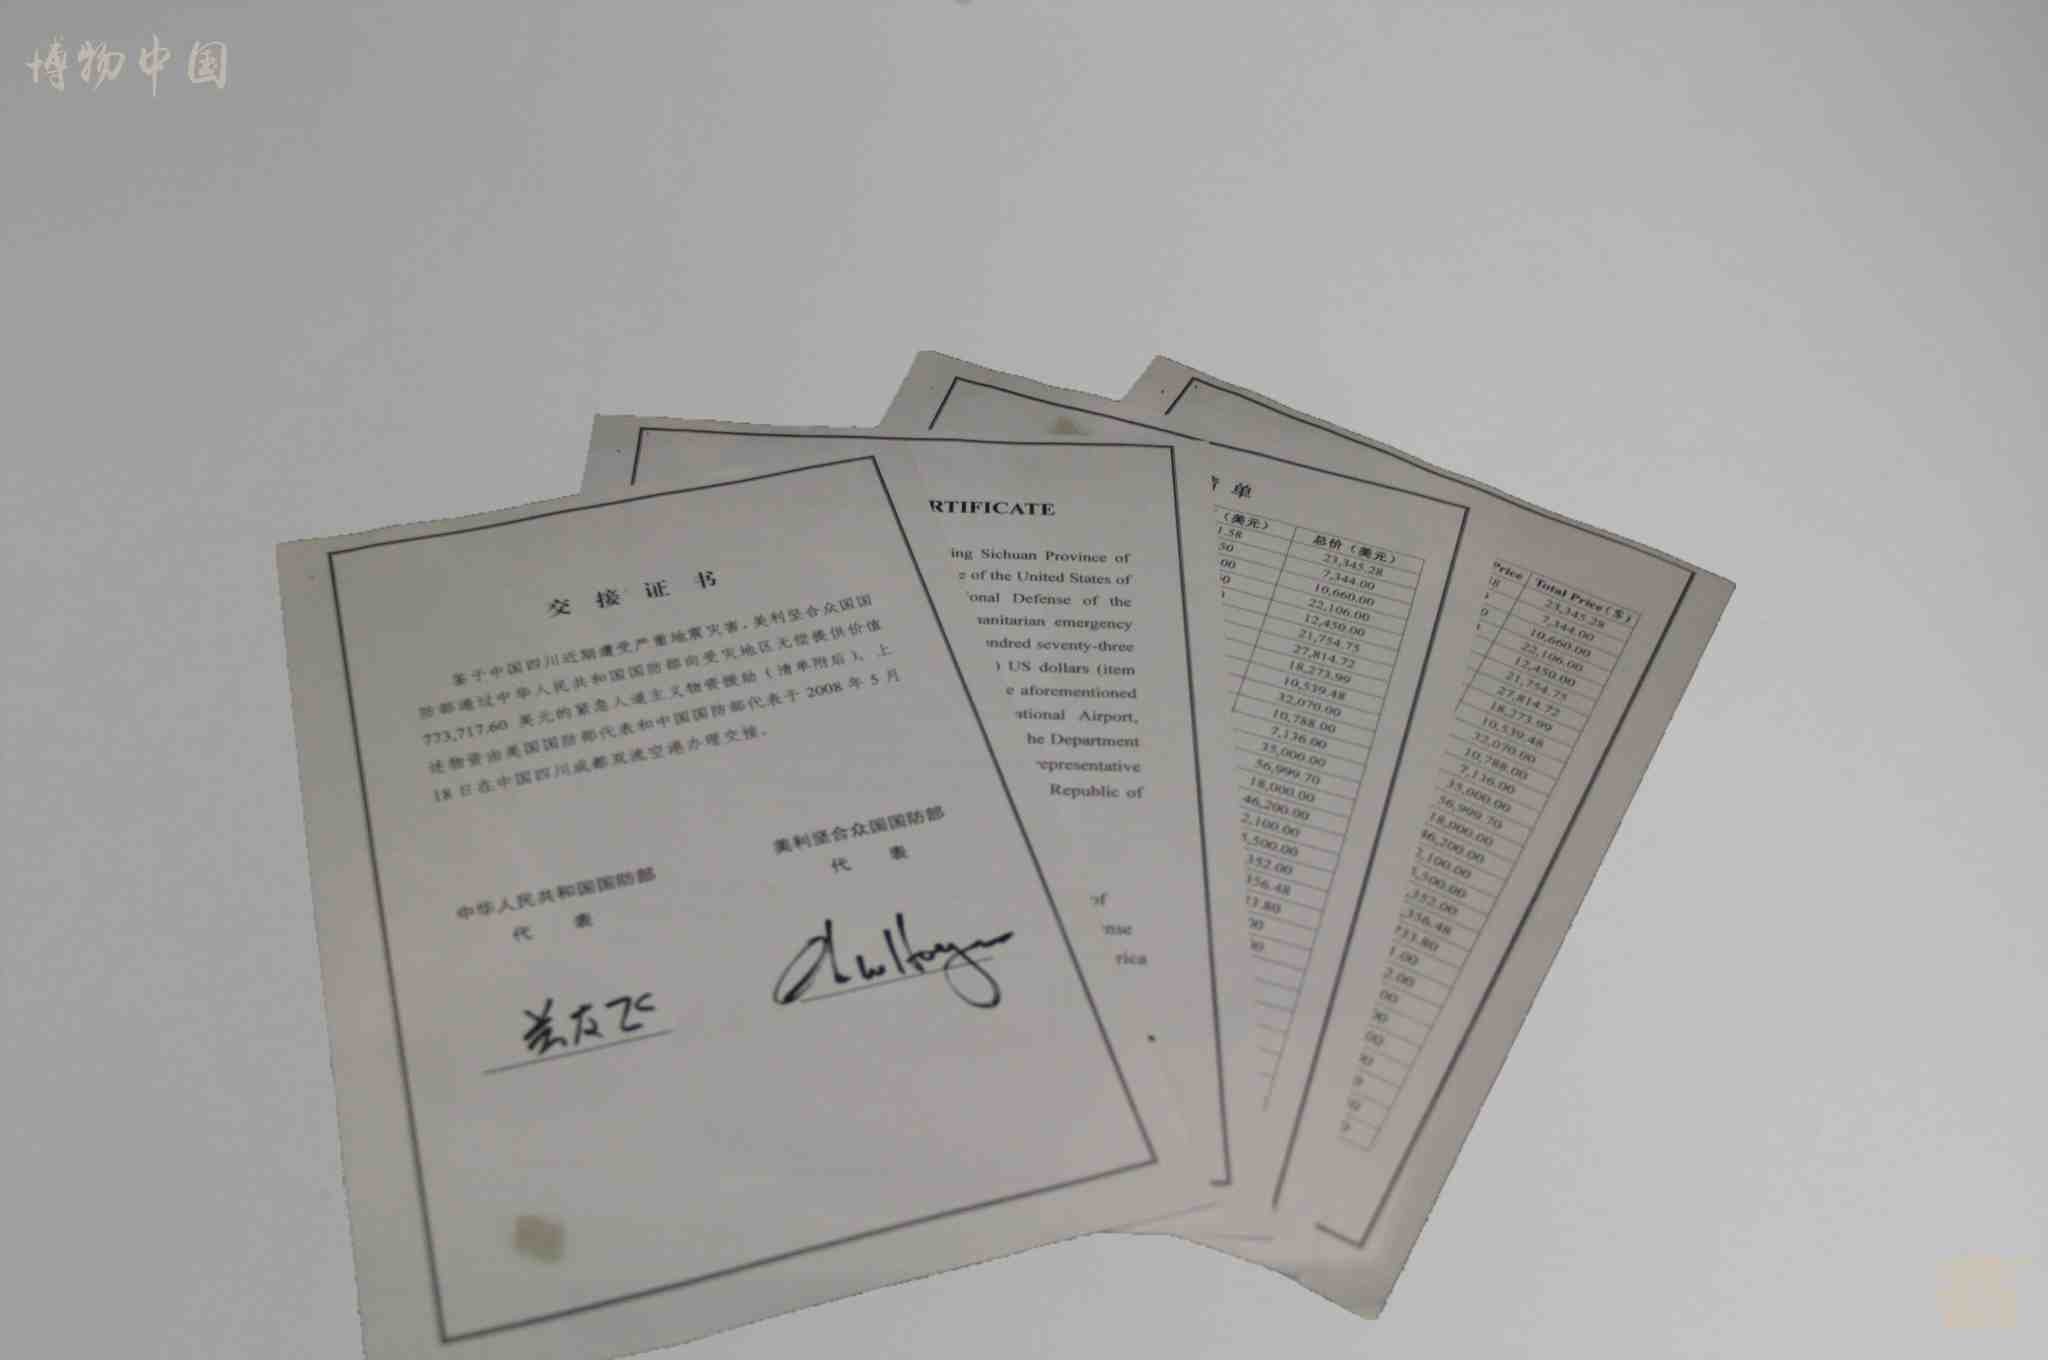 博物中国
交接证书
鉴于中国四川近期遭受严重地震灾害，美利坚合众国国
防部通过中华人民共和国国防部向受灾地区无偿提供价值
773,717.60 美元的紧急人道主义物资援助（清单附后）。上
述物资由美国国防部代表和中国国防部代表于 2008 年 5 月
18 日在中国四川成都双流空港办理交接。
中华人民共和国国防部
代 表
美利坚合众国国防部
代 表
RTIFICATE
ing Sichuan Province of
e of the United States of
onal Defense of the
anitarian emergency
ndred seventy-three
) US dollars (item
e aforementioned
ational Airport,
he Department
epresentative
Republic of
of
nse
rica
单
（美元） 总价（美元）
1.58 23,345.28
50 7,344.00
00 10,660.00
22,106.00
12,450.00
21,754.75
27,814.72
18,273.99
10,539.48
32,070.00
10,788.00
7,136.00
35,000.00
56,999.70
18,000.00
46,200.00
2,100.00
5,500.00
352.00
356.48
33.80
00
00
Price Total Price($)
23,345.28
7,344.00
10,660.00
22,106.00
12,450.00
21,754.75
27,814.72
18,273.99
10,539.48
32,070.00
10,788.00
7,136.00
35,000.00
56,999.70
18,000.00
46,200.00
2,100.00
5,500.00
,352.00
,356.48
733.80
1.00
2.00
00
00
00
00
9
0
9